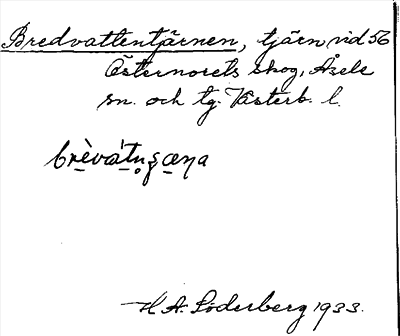 Bredvattentjärnen, tjärn vid 56
Östernorets skog, Åsele
sn. och tg. Västerb. l.
brèvátn̥ʂæṇa
H. A. Söderberg 1933.